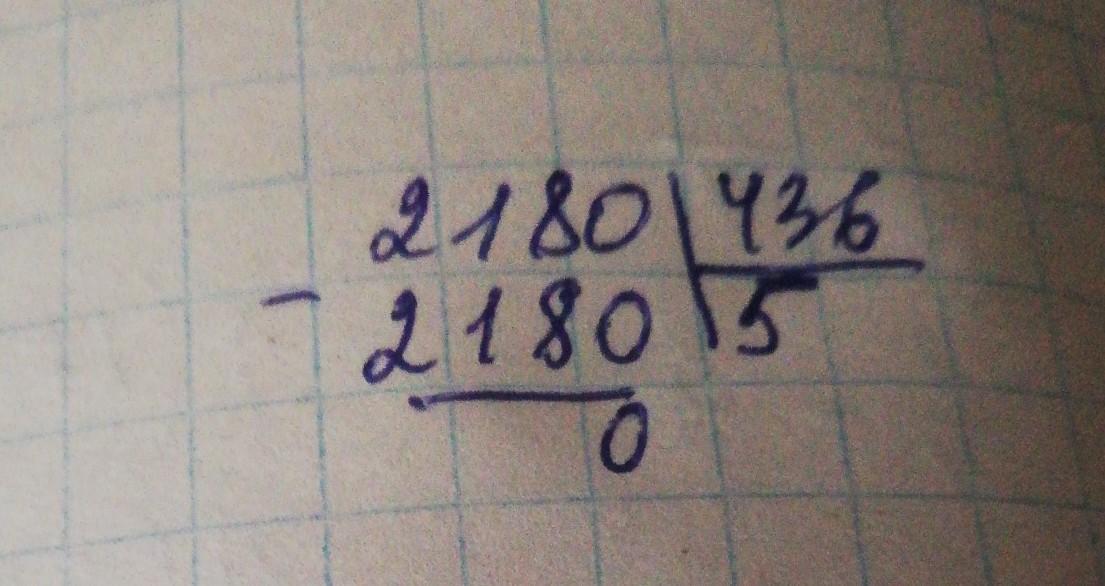 2180 436
- 2180 5
0